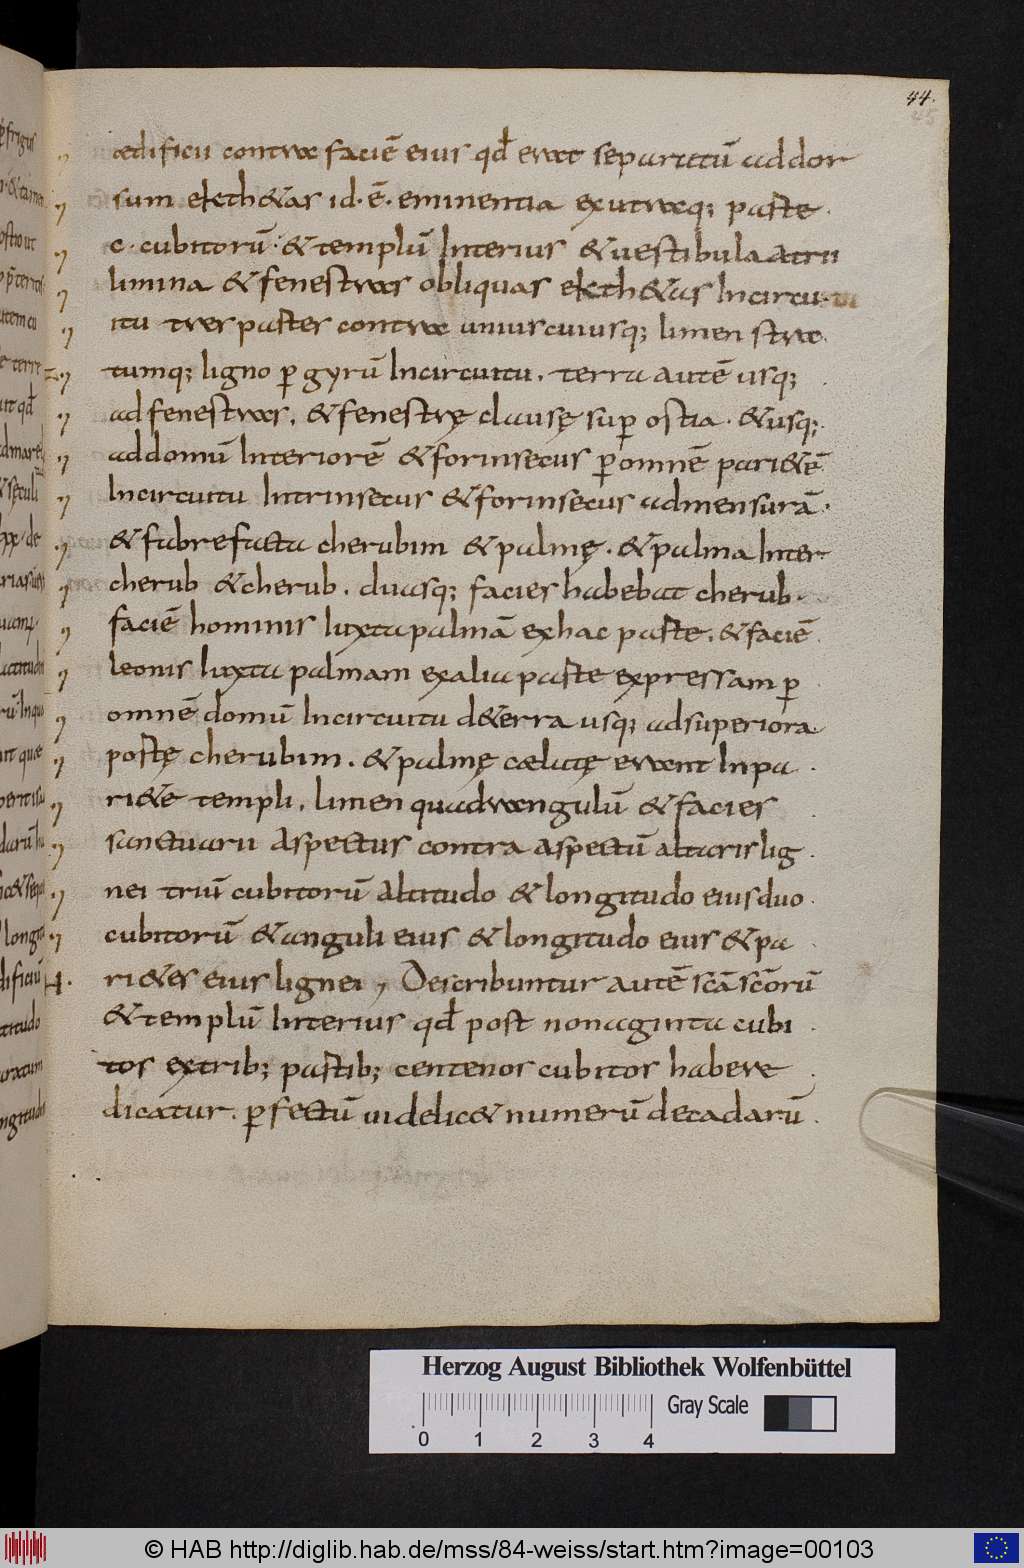 44.
45
ædificii contra faciē eius qđ erat separatū ad dor
sum ekthetas id · ē · eminentia ex utraq; parte ·
c · cubitorū · & templū interius & uestibula atrii
limina & fenestras obliquas ekthetas incircu
itu tres partes contra unius cuiusq; limen stra
tumq; ligno ꝑ gyrū incircuitu . terra autē usq;
ad fenestras . & fenestrę clausę suꝑ ostia · & usq;
ad domū interiorē & forinsecus ꝑ omnē pari&ē
incircuitu intrinsecus & forinsecus ad mensurā ·
& fabrefacta cherubim & palmę . & palma inter
cherub & cherub . duasq; facies habebat cherub ·
faciē hominis iuxta palmā ex hac parte . & faciē
leonis iuxta palmam ex alia parte expressam ꝑ
omnē domū incircuitu d& erra usq; ad superiora
portę cherubim . & palmę cælatę erant in pa
ri&e templi . limen quadrangulū & facies
sanctuarii aspectus contra aspectū altaris lig
nei triū cubitorū altitudo & longitudo eius duo
cubitorū & anguli eius & longitudo eius & pa
ri&es eius lignei , Describuntur autē scā scōrū
& templū interius qđ post nonaginta cubi
tos ex trib; partib; centenos cubitos habere
dicatur . ꝑfectū uidelic& numerū decadarū
Herzog August Bibliothek Wolfenbüttel
Gray Scale
0 1 2 3 4
© HAB http://diglib.hab.de/mss/84-weiss/start.htm?image=00103